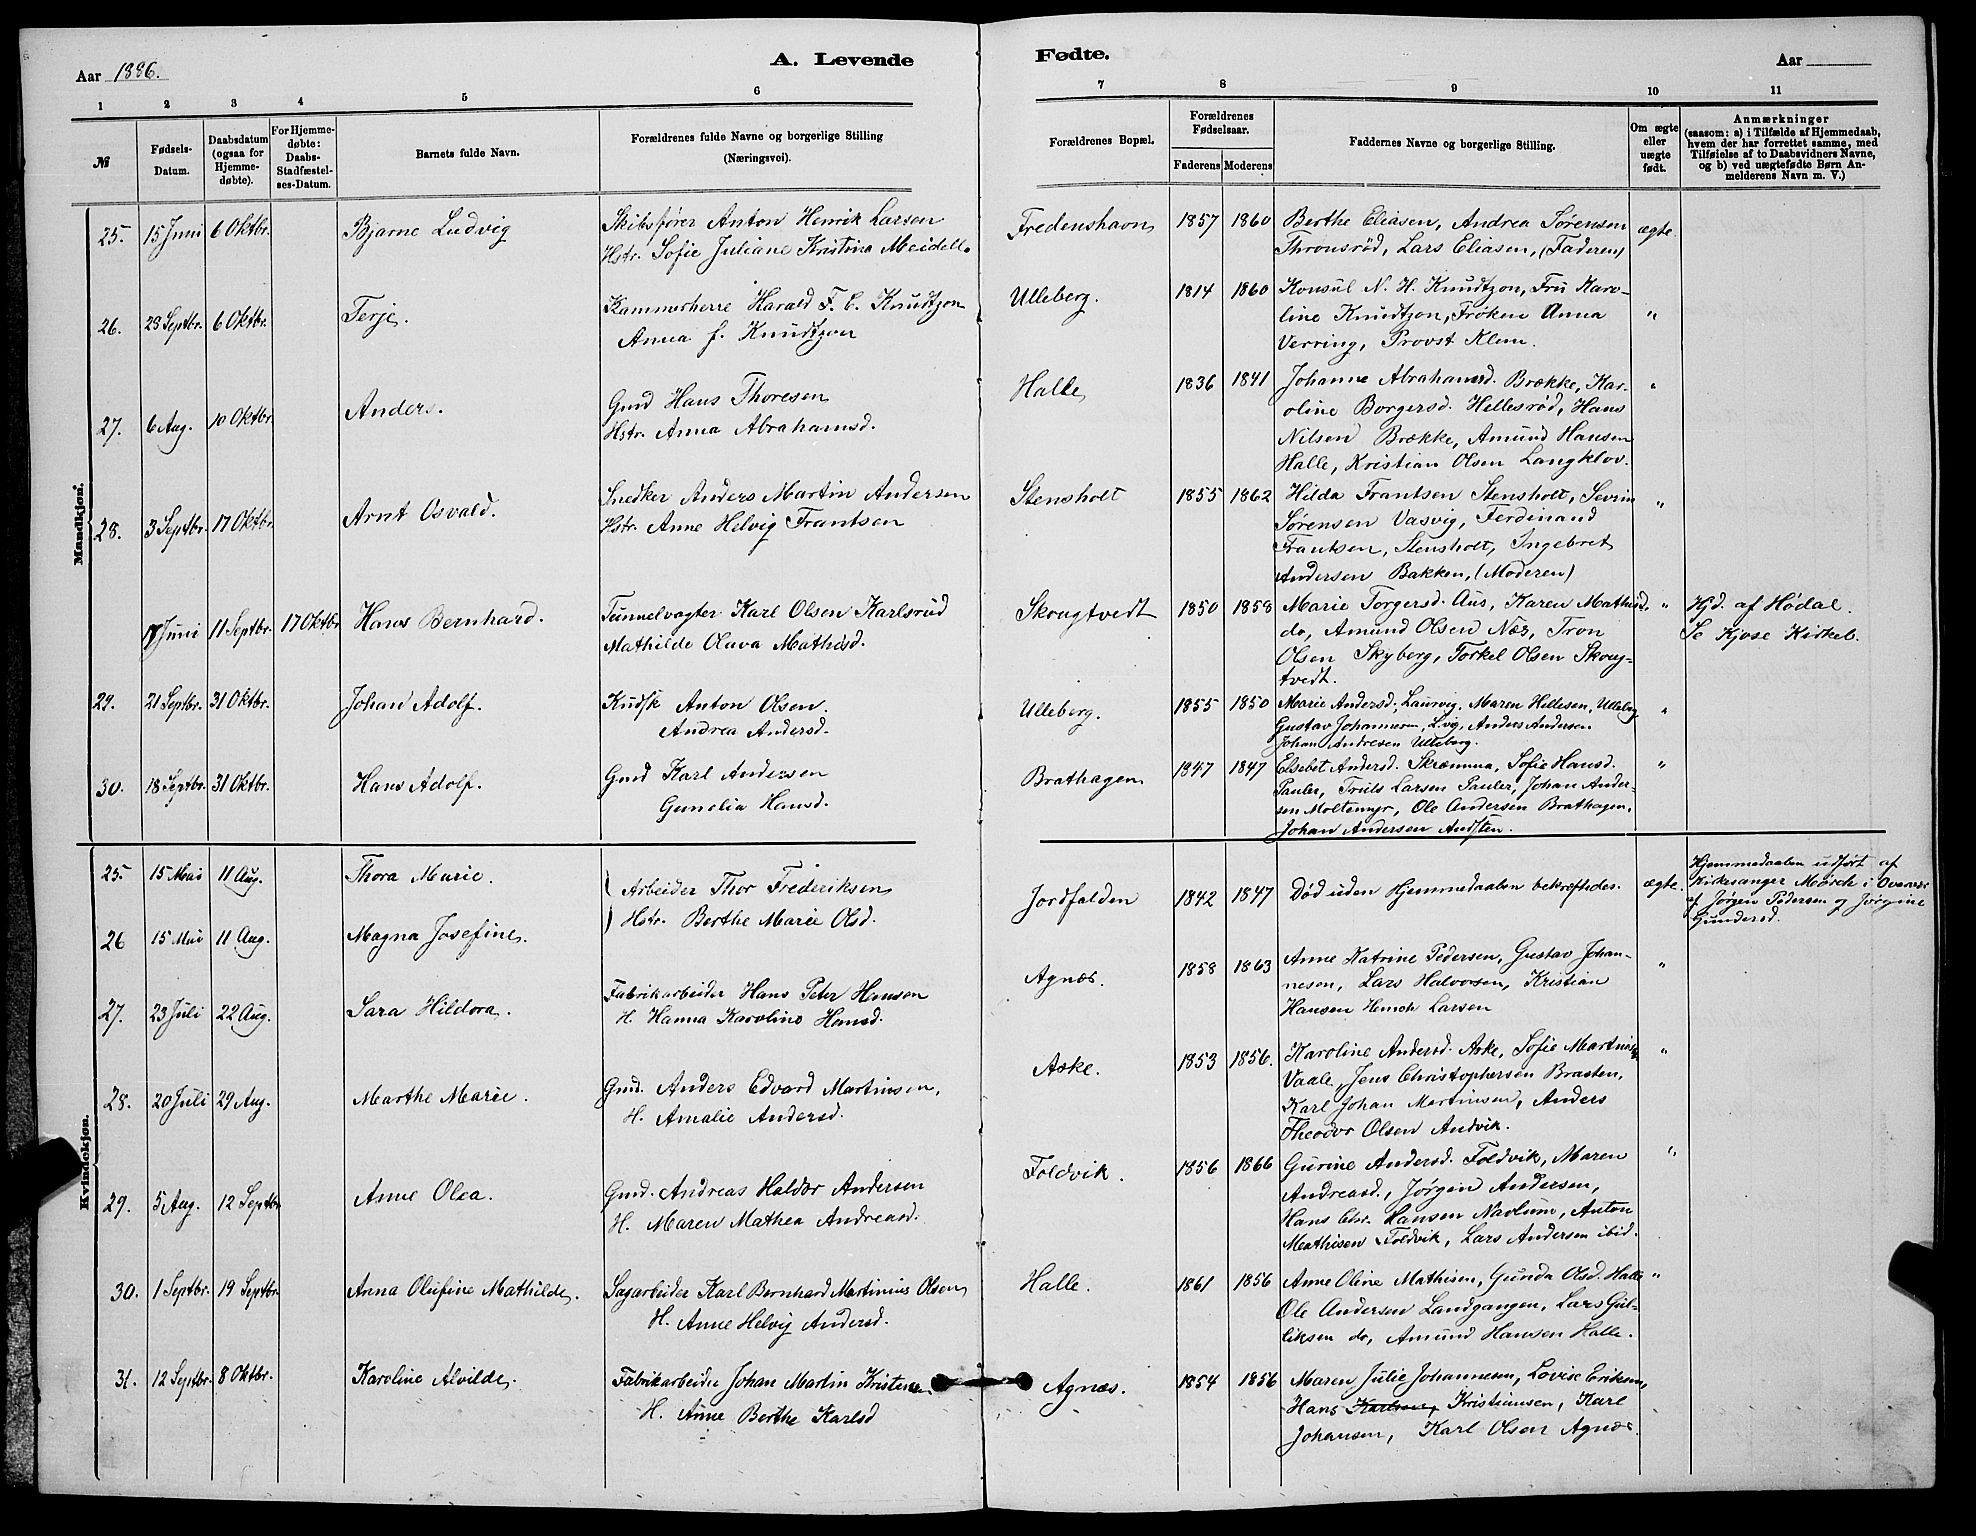 Aar 1886.
A. Levende
Fødte.
Aar
1 2 3 4 5 6 7 8 9 10 11
№
Fødsels-Datum.
Daabsdatum (ogsaa for Hjemme-døbte).
For Hjemme-døbte: Daabs-Stadfæstel-ses-Datum.
Barnets fulde Navn.
Forældrenes fulde Navne og borgerlige Stilling (Næringsvei).
Forældrenes Bopæl.
Forældrenes Fødselsaar.
Faderens Moderens
Faddernes Navne og borgerlige Stilling.
Om ægte eller uægte født.
Anmærkninger
(saasom: a) i Tilfælde af Hjemmedaab,
hvem der har forrettet samme, med
Tilføielse af to Daabsvidners Navne,
og b) ved uægtefødte Børn An-
melderens Navn m. V.)
Mandkjøn.
25. 15 Juni 6 Oktbr. Bjarne Ludvig
Skibsfører Anton Henrik Larsen
Hstr. Sofie Juliane Kristina Meidell.
Fredenshavn 1857 1860
Berthe Eliasen, Andrea Sørensen
Thronsrød, Lars Eliasen, (Faderen)
ægte.
26. 23 Septbr. 6 Oktbr. Terje.
Kammerherre Harald F. C. Knudtzon
Anna f. Knudtzon
Ulleberg. 1814 1860
Konsul N. H. Knudtzon, Fru Karo-
line Knudtzon, Frøken Anna
Verring, Provst Klem.
"
27. 6 Aug. 10 Oktbr. Anders.
Gmd Hans Thoresen
Hstr. Anna Abrahamsd.
Halle 1836 1841
Johanne Abrahamsd. Brække, Kar-
oline Borgersd. Hellesrød, Hans
Nilsen Brække, Amund Hansen
Halle, Kristian Olsen Langklov.
"
28. 3 Septbr. 17 Oktbr. Arnt Osvald.
Snedker Anders Martin Andersen
Hstr. Anne Helvig Frantsen
Stensholt 1855 1862
Hilda Frantsen Stensholt, Sevrin
Sørensen Vasvig, Ferdinand
Frantsen, Stensholt, Ingebret
Andersen Bakken, (Moderen)
"
Juni 11 Septbr. 17 Oktbr Hans Bernhard.
Tunnelvagter Karl Olsen Karlsrud
Mathilde Olava Mathisd.
Skrugtvedt 1850 1858
Marie Torgersd. Aus, Karen Mathisd.
do, Amund Olsen Næs, Tron
Olsen Skyberg, Torkel Olsen Skoug-
tvedt.
"
Hjd. af Hødal.
Se Kjose Kirkeb.
29. 21 Septbr. 31 Oktbr. Johan Adolf.
Kudsk Anton Olsen.
Andrea Andersd.
Ulleberg. 1855 1850
Marie Andersd, Laurvig, Maren Hillesen, Ulleberg
Gustav Johannesen, Lvig, Anders Andersen
Johan Andresen Ulleberg.
"
30. 18 Septbr. 31 Oktbr. Hans Adolf.
Gmd Karl Andersen
Gunelia Hansd.
Brathagen 1847 1847
Elsebet Andersd. Skræmma, Sofie Hansd.
Pauler, Truls Larsen Pauler, Johan Ander-
sen Moltemyr, Ole Andersen Brathagen,
Johan Andersen Andsten.
"
Kvindekjøn.
25. 15 Mai 11 Aug. Thora Marie.
26 15 Mai 11 Aug. Magna Josefine.
Arbeider Thor Frederiksen
Hstr. Berthe Marie Olsd.
Jordfalden 1842 1847
Død uden Hjemmedaaben bekræftedes.
ægte.
Hjemmedaaben udført af
Kirkesanger Mørch i Overvær
af Jørgen Pedersen og Jørgine
Gundersd.
27. 23 Juli 22 Aug. Sara Hildora.
Fabrikarbeider Hans Peter Hansen
H. Hanna Karoline Hansd.
Agnæs. 1858 1863
Anne Katrine Pedersen, Gustav Johan-
nesen, Lars Halvorsen, Kristian
Hansen Larsen
"
28. 20 Juli 29 Aug. Marthe Marie.
Gmd. Anders Edvard Martinsen,
H. Amalie Andersd.
Aske. 1853 1856.
Karoline Andersd. Aske, Sofie Martinsd.
Vaale, Jens Christophersen Brasten,
Karl Johan Martinsen, Anders
Theodor Olsen Andvik.
"
29. 5 Aug. 12 Septbr Anne Olea.
Gmd. Andreas Haldor Andersen
H. Maren Mathea Andreasd.
Foldvik. 1856 1866
Gurine Andersd. Foldvik, Maren
Andreasd., Jørgen Andersen,
Hans Chr. Hansen Navlum, Anton
Mathisen Foldvik, Lars Andersen ibid.
"
30. 1 Septbr. 19 Septbr Anna Olufine Mathilde.
Sagarbeider Karl Bernhard Martinius Olsen
H. Anne Helvig Andersd.
Halle. 1861 1856
Anne Oline Mathisen, Gunda Olsd. Halle
Ole Andersen Landgangen, Lars Gul-
liksen do, Amund Hansen Halle.
"
31. 12 Septbr. 8 Oktbr. Karoline Alvilde.
Fabrikarbeider Johan Martin Kristens.
H. Anne Berthe Karlsd
Agnæs. 1854 1856
Maren Julie Johannesen, Lovise Eriksen,
Hans Karlsen, Kristiansen, Karl
Johansen, Karl Olsen Agnæs.